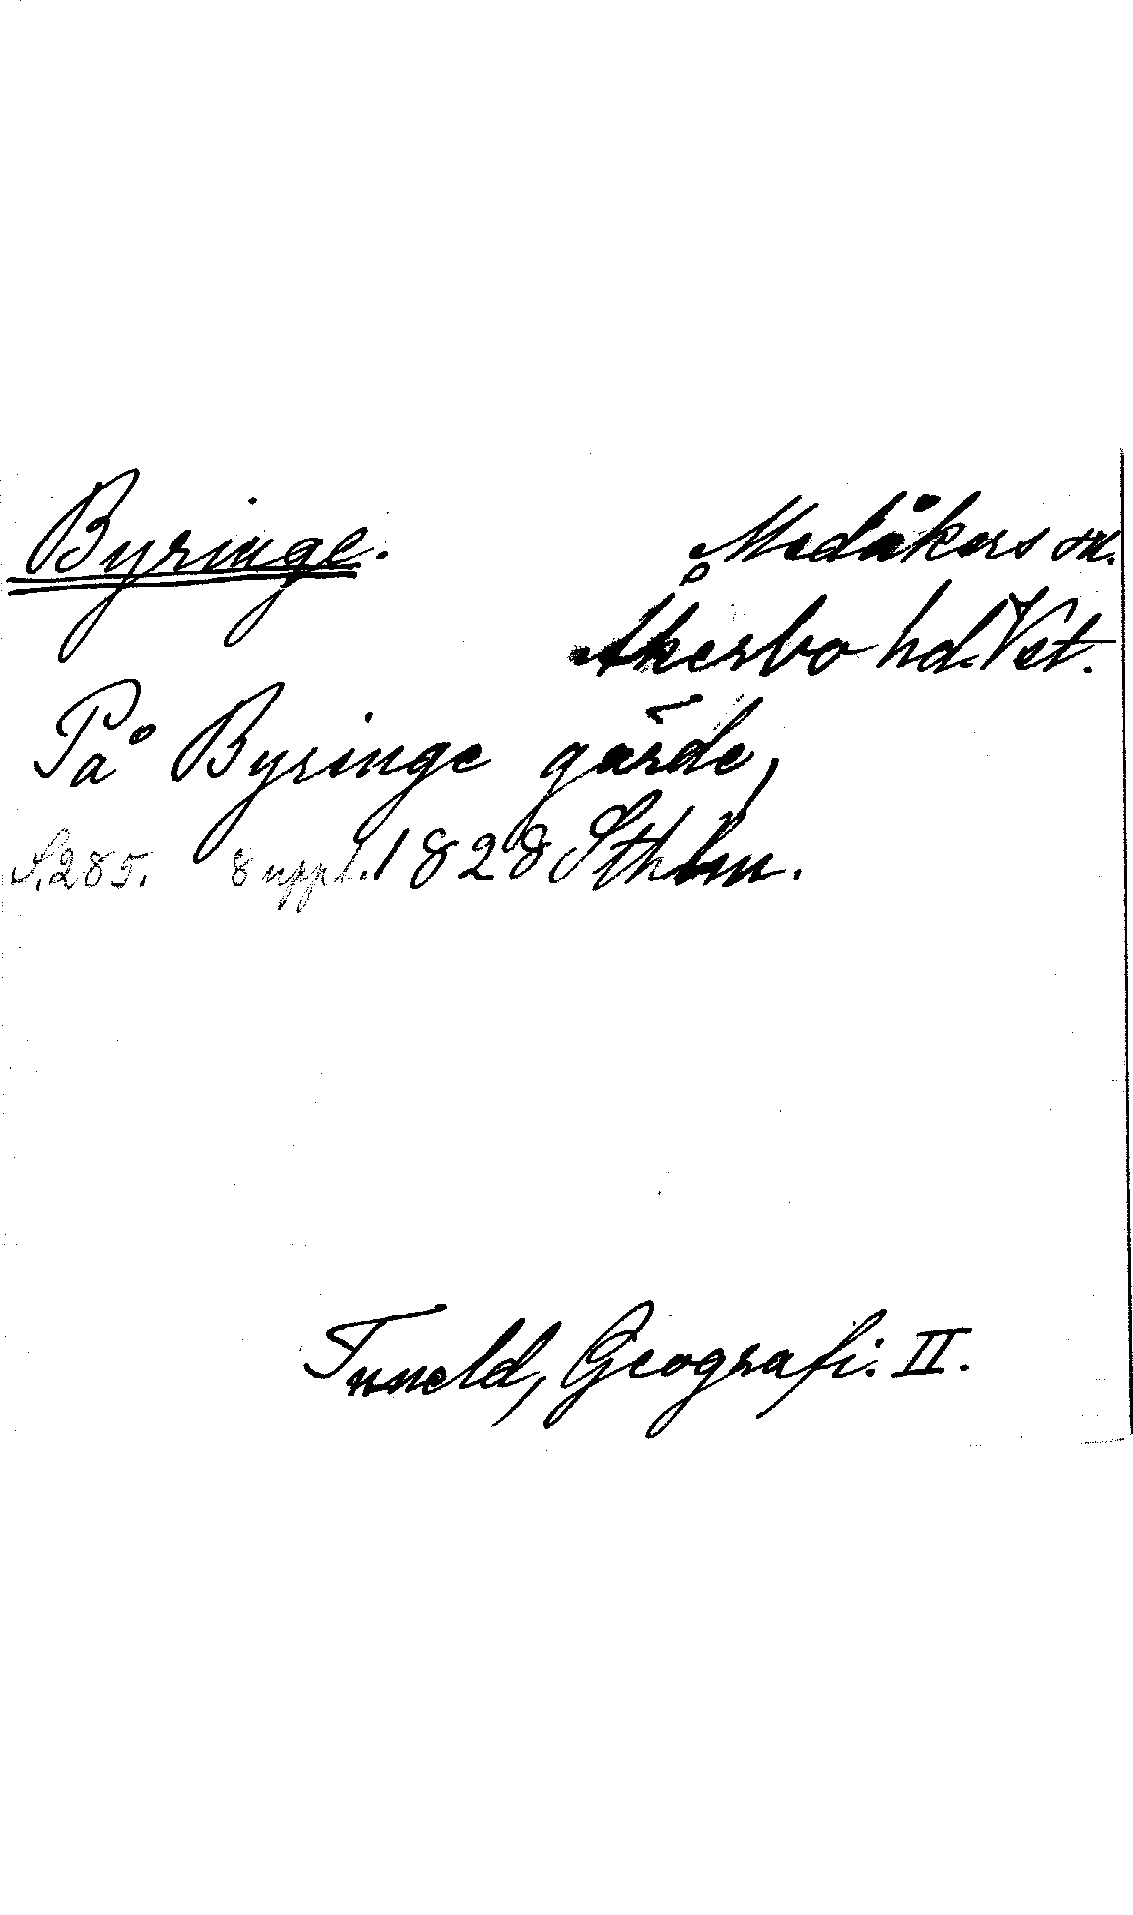 Byringe.
Medåkers sn.
Åkerbo hd. Vst.
På Byringe gärde,
S. 285. 8 uppl. 1828 Sthlm.
Tuneld, Geografi. II.